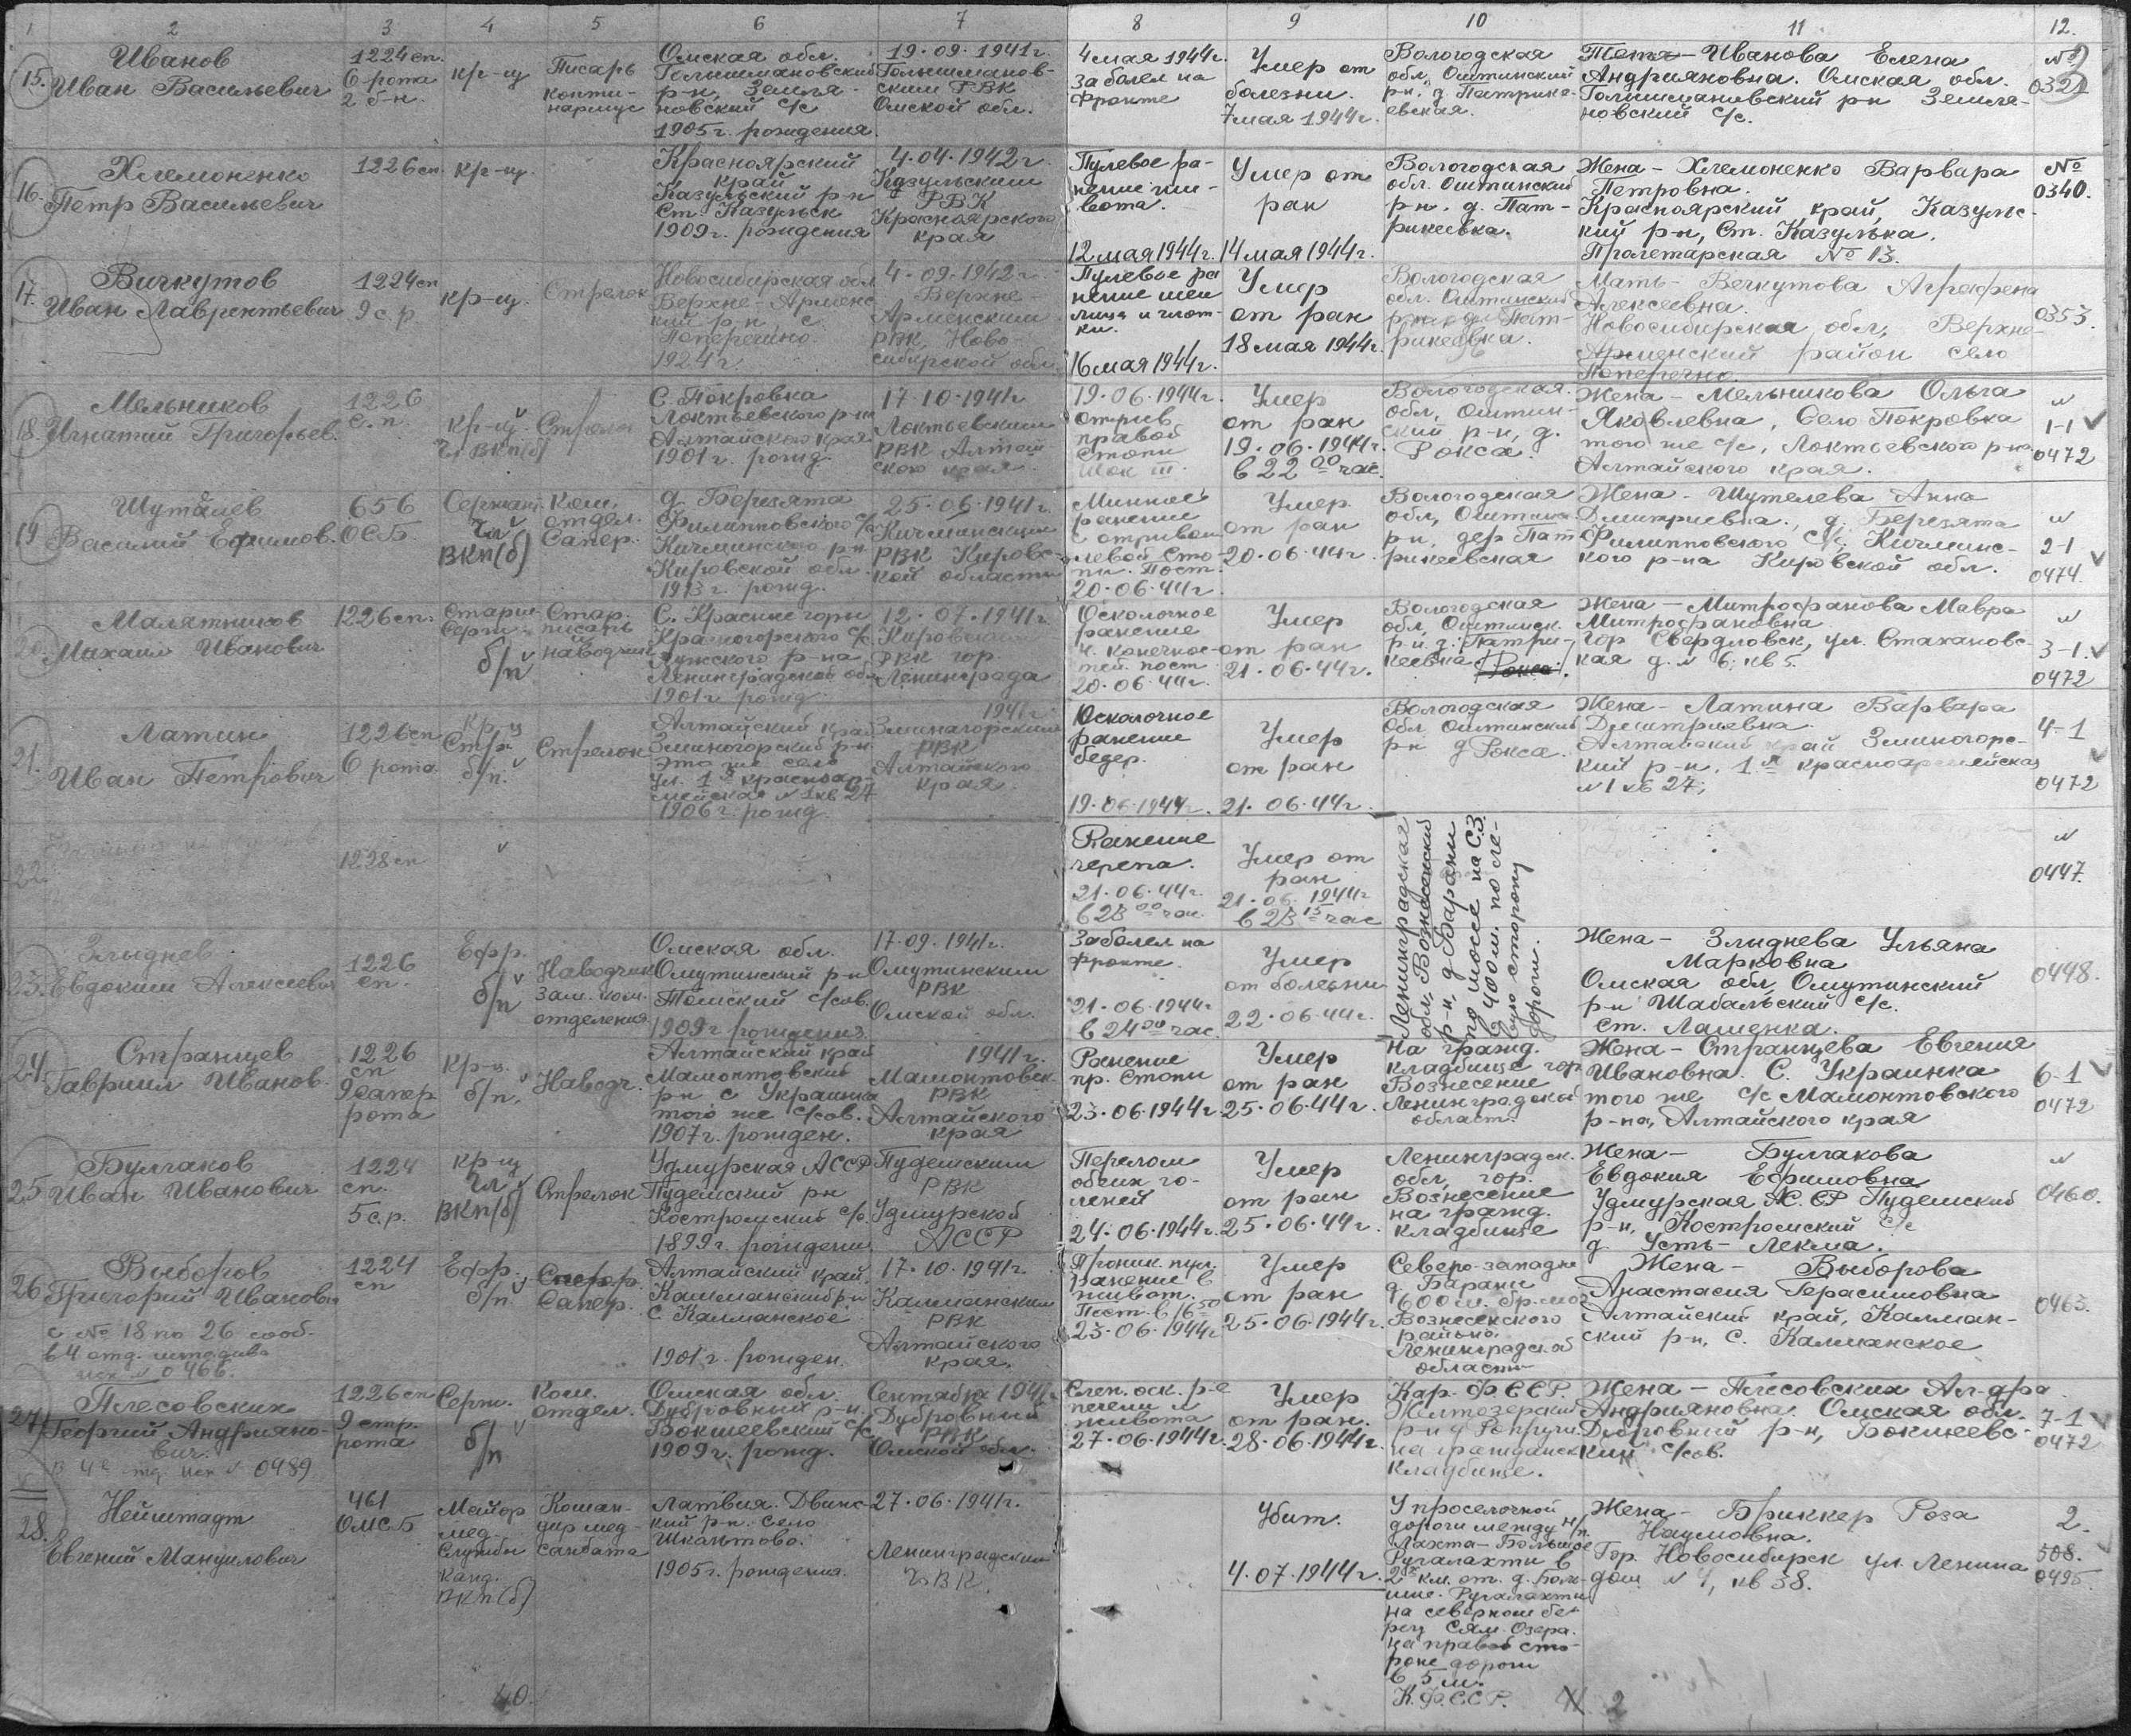 1 2 3 4 5 6 7 8 9 10 11 12.
15.
Иванов
Иван Васильевич
1224 сп.
6 рота
2 б-н.
кр-ц
Писарь
Омская обл.
Голышмановский
р-н, Земля-
новский с/с
1905 г. рождения.
19.09.1941 г.
Голышманов-
ским РВК
Омской обл.
4 мая 1944 г.
Заболел на
фронте
Умер от
болезни.
7 мая 1944 г.
Вологодская
обл, Оштинский
р-н, д. Патрике-
евская.
Иванова Елена
Андрияновна. Омская обл.
Голышмановский р-н Земля-
новский с/с.
№
0321
16.
Хлемоненко
Петр Васильевич
1226 сп
кр-ц.
Красноярский
край
Казульский р-н
ст. Казульск
1909 г. рождения
4.04.1942 г
Казульским
РВК
Красноярского
края
Пулевое ра-
нение жи-
вота.
12 мая 1944 г.
Умер от
ран
14 мая 1944 г.
Вологодская
обл. Оштинский
р-н. д. Пат-
рикеевка.
Жена - Хлемоненко Варвара
Петровна.
Красноярский край, Казуль-
кий р-н, Ст. Казулька.
Пролетарская № 13.
№
0340.
17.
Вичкутов
Иван Лаврентьевич
1224 сп
9 с.р
кр-ц.
Стрелок
Новосибирская обл
Верхне-Арменс
кий р-н, с.
Поперечно.
1924 г.
4.09.1942 г.
Верхне-
Арменским
РВК, Ново-
сибирской обл.
Пулевое ра
нение шеи
лица и глот-
ки.
16 мая 1944 г.
Умер
от ран
18 мая 1944 г.
Вологодская
обл. Оштинский
р-н, д. Пат-
рикеевка.
Мать - Вечкутова Агрофена
Алексеевна.
Новосибирская обл, Верхне-
Арменский район село
Поперечно
0353.
18.
Мельников
Игнатий Григорьев.
1226
с.п.
кр-ц
Чл ВКП(б)
Стрелок
С. Покровка
Локтьевского р-на
Алтайского края
1901 г. рожд.
17.10.1941 г
Локтьевским
РВК Алтай
ского края.
19.06.1944 г.
Отрыв
правой
стопы
Шок III.
Умер
от ран
19.06.1944 г.
в 22 00 час.
Вологодская.
обл, Оштин-
ский р-н, д.
Рокса.
Жена - Мельникова Ольга
Яковлевна, Село Покровка
того же с/с, Локтьевского р-на
Алтайского края.
№
1-1
0472
19
Шуталев
Василий Ефимов.
656
ОСБ
Сержант
Чл
ВКП(б)
Ком.
отдел.
Сапер.
д. Березята
Филипповского с/с
Кичминского р-н
Кировской обл.
1913 г. рожд.
25.06.1941 г.
Кичминским
РВК Кировс-
кой области
Минное
ранение
с отрывом
левой сто-
пы. Пост.
20.06.44 г.
Умер
от ран
20.06.44 г.
Вологодская
обл, Оштинс.
р-н, дер Пат
рикеевская
Жена - Шутелева Анна
Дмитриевна., д. Березята
Филипповского с/с, Кичминс-
кого р-на Кировской обл.
№
2-1
0474.
20.
Малятников
Михаил Иванович
1226 сп.
Старш
Серж-
б/п
Стар.
писарь
наводчик
С. Красные горы
Красногорского с/с
Лужского р-на
Ленинградской обл.
1901 г рожд.
12.07.1941 г.
Кировским
РВК гор.
Ленинграда
Осколочное
ранение
н. конечнос-
тей. пост
20.06.44 г.
Умер
от ран
21.06.44 г.
Вологодская
обл, Оштинск.
р-н, д. Патри-
кеевка. Рокса.
Жена - Митрофанова Мавра
Митрофановна
гор Свердловск, ул. Стахановс-
кая д. № 6, кв 5.
№
3-1.
0472
21.
Латин
Иван Петрович
1226 сп
6 рота
Кр-ц
Стр.
б/п.
Стрелок
Алтайский край
Змеиногорский р-н
это же село
ул. 1я красноар-
мейская № 1 кв 27
1906 г. рожд.
1941 г.
Змеиногорским
РВК
Алтайского
края.
Осколочное
ранение
бедер.
19.06.1944 г.
Умер
от ран
21.06.44 г.
Вологодская
обл Оштинский
р-н д Рокса.
Жена - Латина Варвара
Дмитриевна
Алтайский край Змеиногорс-
кий р-н. 1я красноармейская
№ 1 кв 27;
4-1
0472
22
1228 сп
Ранение
черепа.
21.06.44 г.
в 23 00 час.
Умер от
ран
21.06.1944 г
в 23 15 час
Ленинградская
обл, Вознесенский
р-н, д. Бараны
по шоссе на С.З.
в 400 м. по ле-
вую сторону
дороги.
№
0447.
23.
Злыднев
Евдоким Алексеевич
1226
сп.
Ефр.
б/п
Наводчик
Зам. ком.
отделения
Омская обл.
Омутинский р-н
Томский с/сов.
1909 г рождения
17.09.1941 г.
Омутинским
РВК
Омской обл.
Заболел на
фронте.
21.06.1944 г
в 24 00 час.
Умер
от болезни
22.06.44 г.
Жена - Злыднева Ульяна
Марковна
Омская обл, Омутинский
р-н Шабальский с/с.
ст. Ламенка.
0448.
24.
Странцев
Гавриил Иванов.
1226
сп
9 сапер
рота
кр-ц.
б/п.
Наводч.
Алтайский край
Мамонтовский
р-н с Украинка
того же с/сов.
1907 г. рожден.
1941 г.
Мамонтовск
РВК
Алтайского
края
Ранение
пр. стопы
23.06.1944 г.
Умер
от ран
25.06.44 г.
на гражд.
кладбище гор
Вознесение
Ленинградской
област.
Жена - Странцева Евгения
Ивановна. С. Украинка
того же с/с Мамонтовского
р-на, Алтайского края
6-1
0472
25
Булгаков
Иван Иванович
1224
сп.
5 с.р.
кр-ц
Чл
ВКП(б)
Стрелок
Удмурская АССР
Пудемский рн
Костромский с/с.
1899 г. рождени
Пудемским
РВК
Удмурской
АССР
Перелом
обеих го-
леней
24.06.1944 г.
Умер
от ран
25.06.44 г.
Ленинградск.
обл, гор.
Вознесение
на гражд.
кладбище
Жена - Булгакова
Евдокия Ефимовна
Удмурская А.С.СР Пудемский
р-н, Костромский с/с
д. Усть-Лекма.
№
0460.
26
Выборов
Григорий Иванович
с № 18 по 26 сооб.
в 4 отд. штадива
исх № 0466.
1224
сп
Ефр.
б/п
Сапер.
Алтайский край,
Калманский р-н
с Калманское
1901 г. рожден.
17.10.1941 г.
Калманским
РВК
Алтайского
края,
Проник. пул.
ранение в
живот.
Пост. в 16 50
23.06.1944 г
Умер
от ран
25.06.1944 г.
Северо-западн
д. Бараны
600 м.
Вознесенского
района.
Ленинградской
области
Жена - Выборова
Анастасия Герасимовна
Алтайский край, Калман-
ский р-н, С. Калманское
0463.
27
Плесовских
Георгий Андрияно-
вич.
0489
1226 сп
9 стр.
рота
Серж.
б/п
Ком.
отдел.
Омская обл.
Дубровный р-н.
Вокшеевский с/с
1909 г. рожд.
Сентябрь 1941 г
Дубровным
РВК
Омской обл.
Слеп. оск. р-е
печени и
живота
27.06.1944 г.
Умер
от ран.
28.06.1944 г.
Кар-Ф.ССР.
Желтозерский
р-н д Ропручи
на гражданск
кладбище.
Жена - Плесовских Ал-дра
Андрияновна. Омская обл.
Дубровный р-н, Вокшеевс-
кий с/сов.
7-1
0472
28.
Нейштадт
Евгений Мануилович
461
ОМСБ
Майор
мед.
службы
канд.
ВКП(б)
Коман-
дир мед-
санбата
Латвия. Двинс-
кий р-н. село
Шкальтово.
1905 г. рождения.
27.06.1941 г.
Ленинградским
ГВК.
Убит.
4.07.1944 г.
У проселочной
дороги между н/п.
Лахта-Большое
Ругалахти в
2х км. от. д. Боль-
шие. Ругалахти
на северном бе-
регу Сям. Озера.
на правой сто-
роне дороги
в 5 м.
К.Ф.ССР.
Жена - Бриккер Роза
Наумовна.
Гор. Новосибирск ул. Ленина
дом № 4, кв 38.
2.
508.
0495.
40.
2